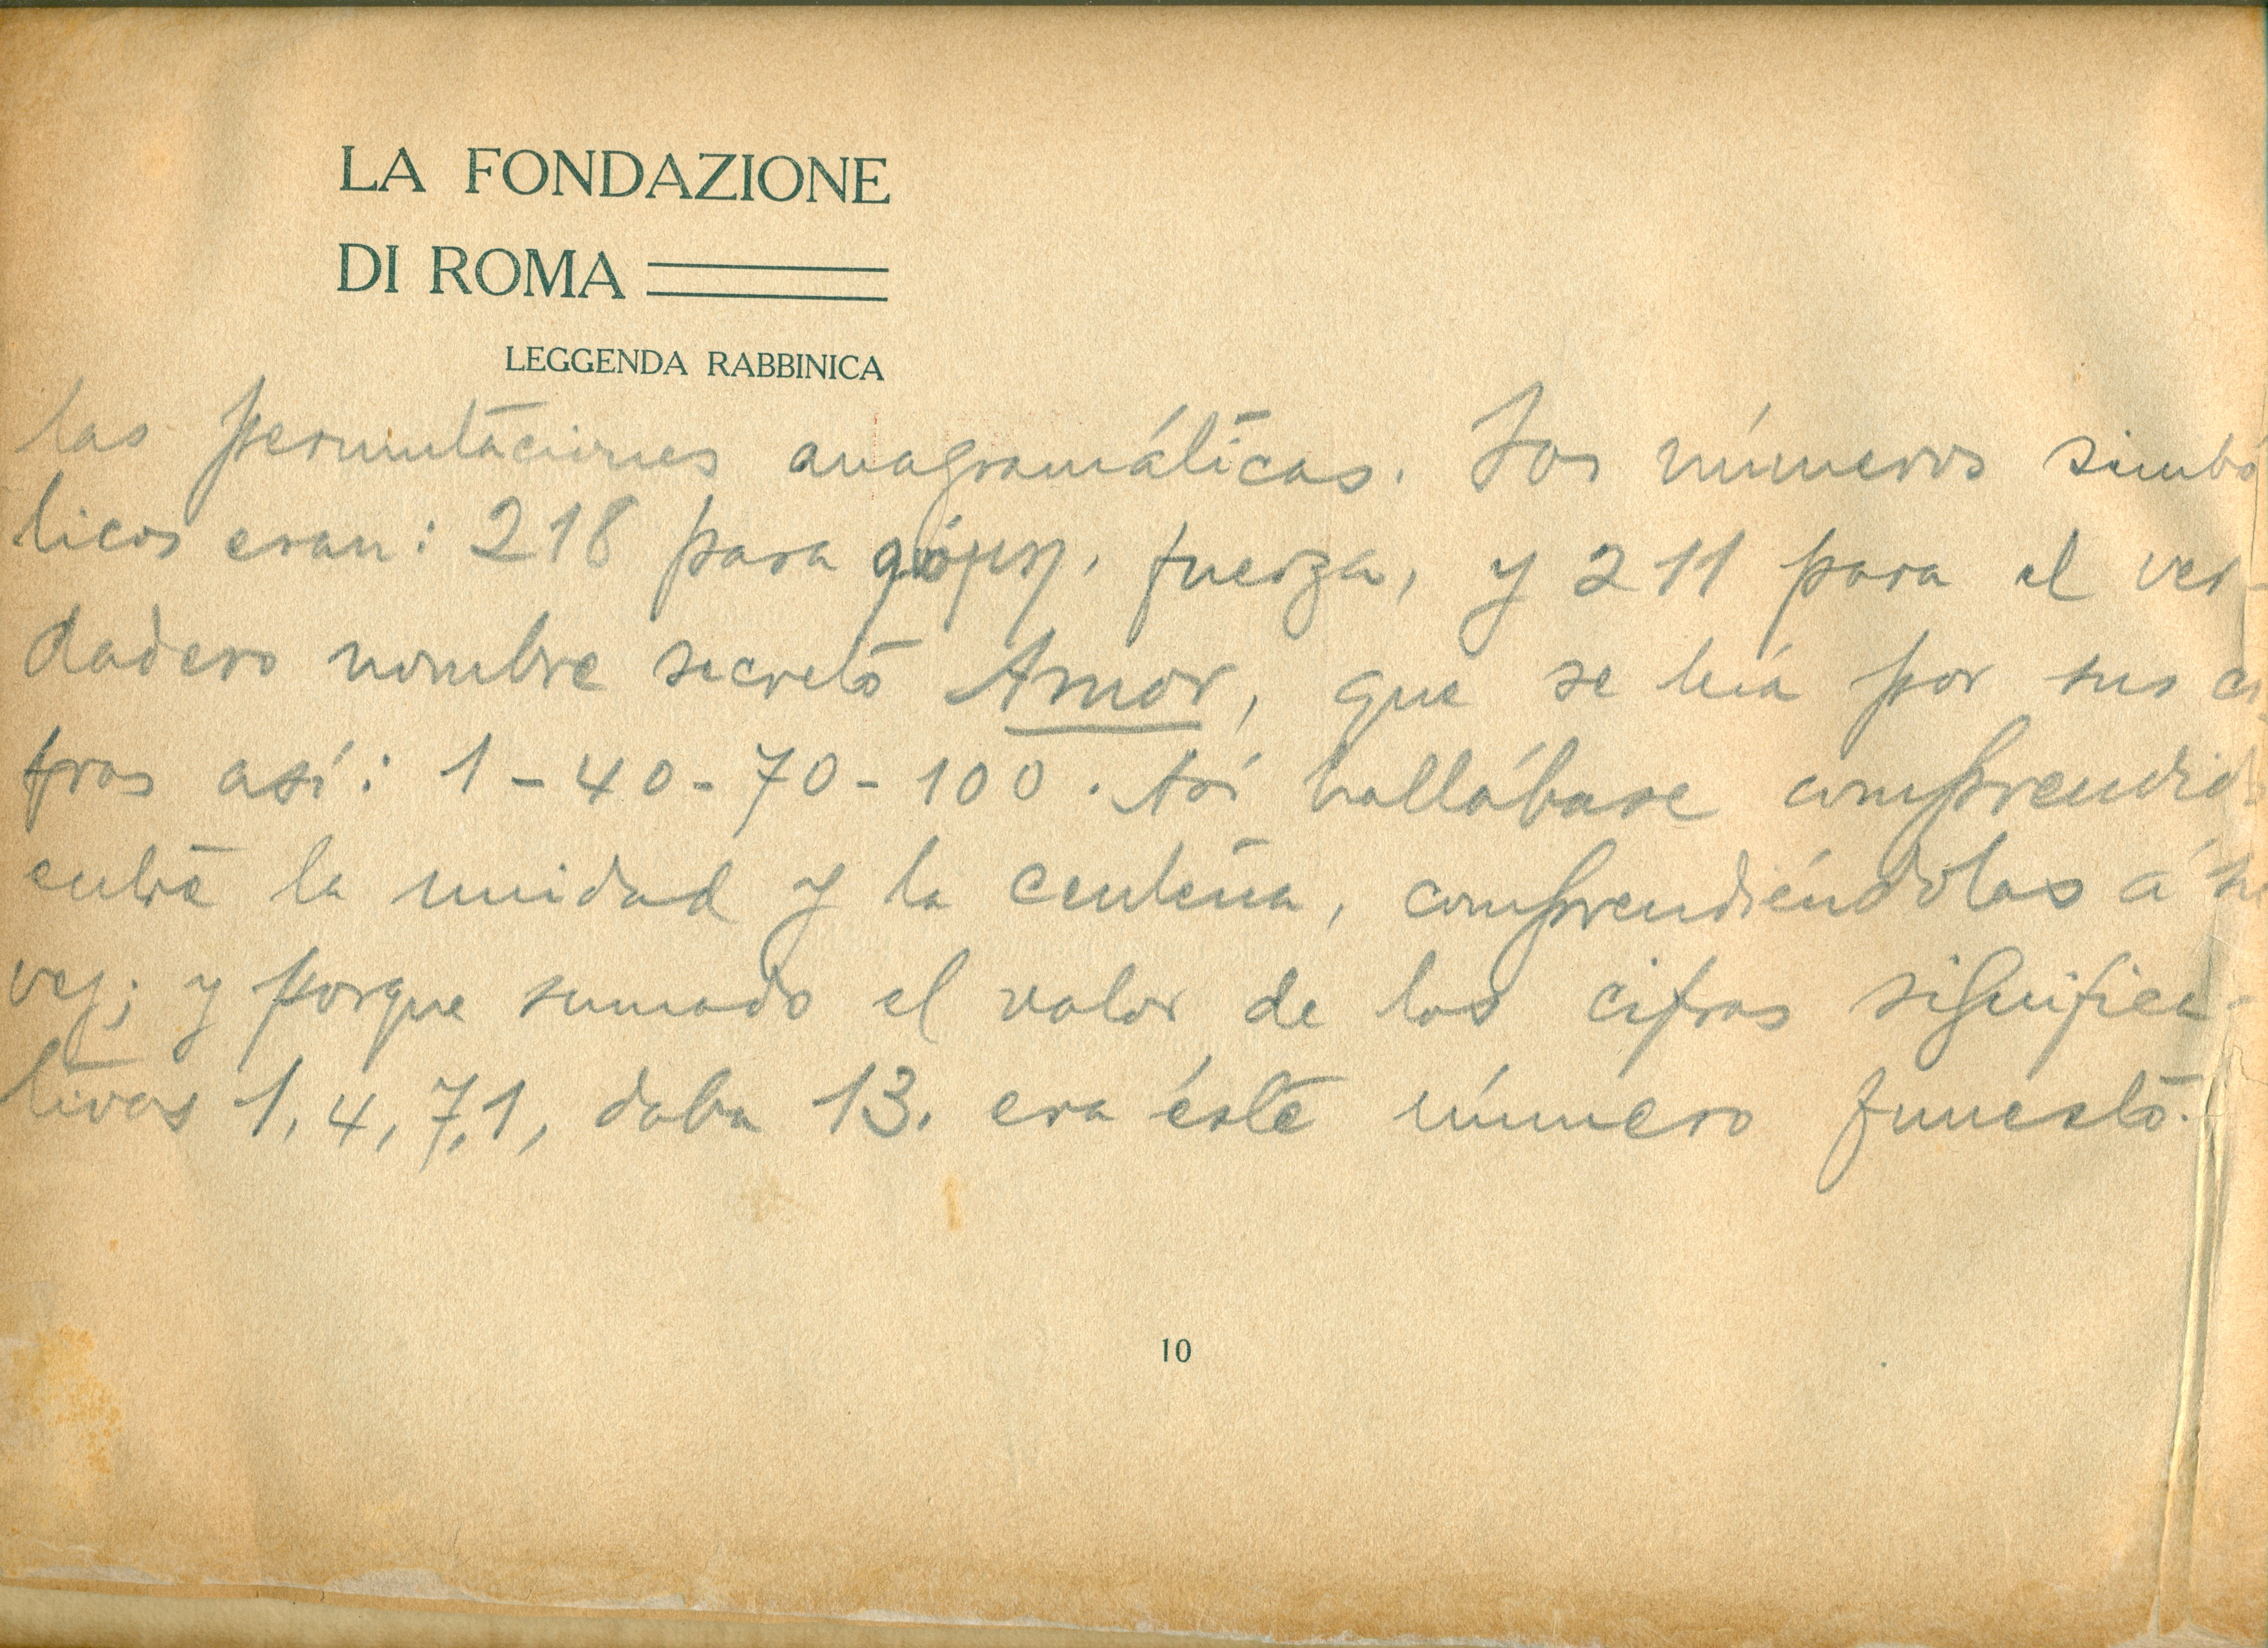 LA FONDAZIONE
DI ROMA
LEGGENDA RABBINICA
las permutaciones anagramáticas. Los números simbó
licos eran: 218 para fuerza, y 211 para el ver-
dadero nombre secreto Amor, que se leía por sus ci
fras así: 1-40-70-100. Así hallábase comprendid
entre la unidad y la centena, comprendiéndolas á su
vez; y porque sumado el valor de las cifras significa-
tivas 1, 4, 7, 1, daba 13. era éste número funesto.
10